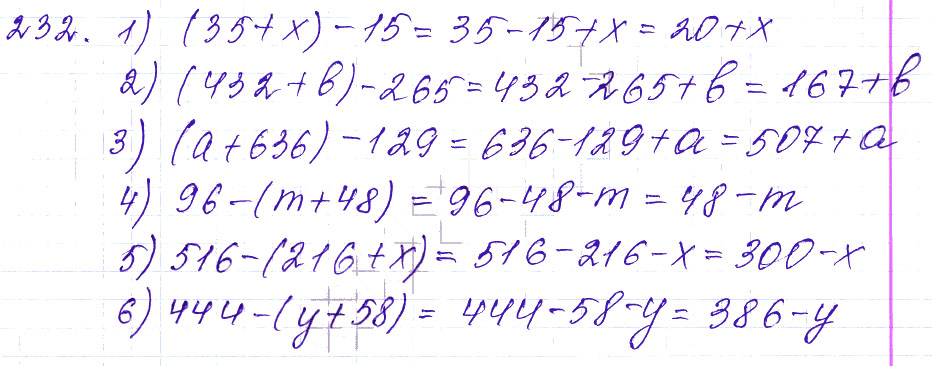 232. 1) (35+x)-15=35-15+x=20+x
2) (432+в)-265=432-265+в=167+в
3) (a+636)-129=636-129+a=507+a
4) 96-(m+48)=96-48-m=48-m
5) 516-(216+x)=516-216-x=300-x
6) 444-(y+58)=444-58-y=386-y